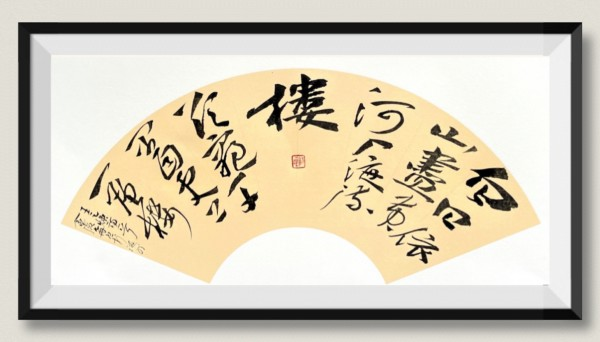 白日依
山盡黃
河入海流
樓
欲窮千
里目更上
一層樓